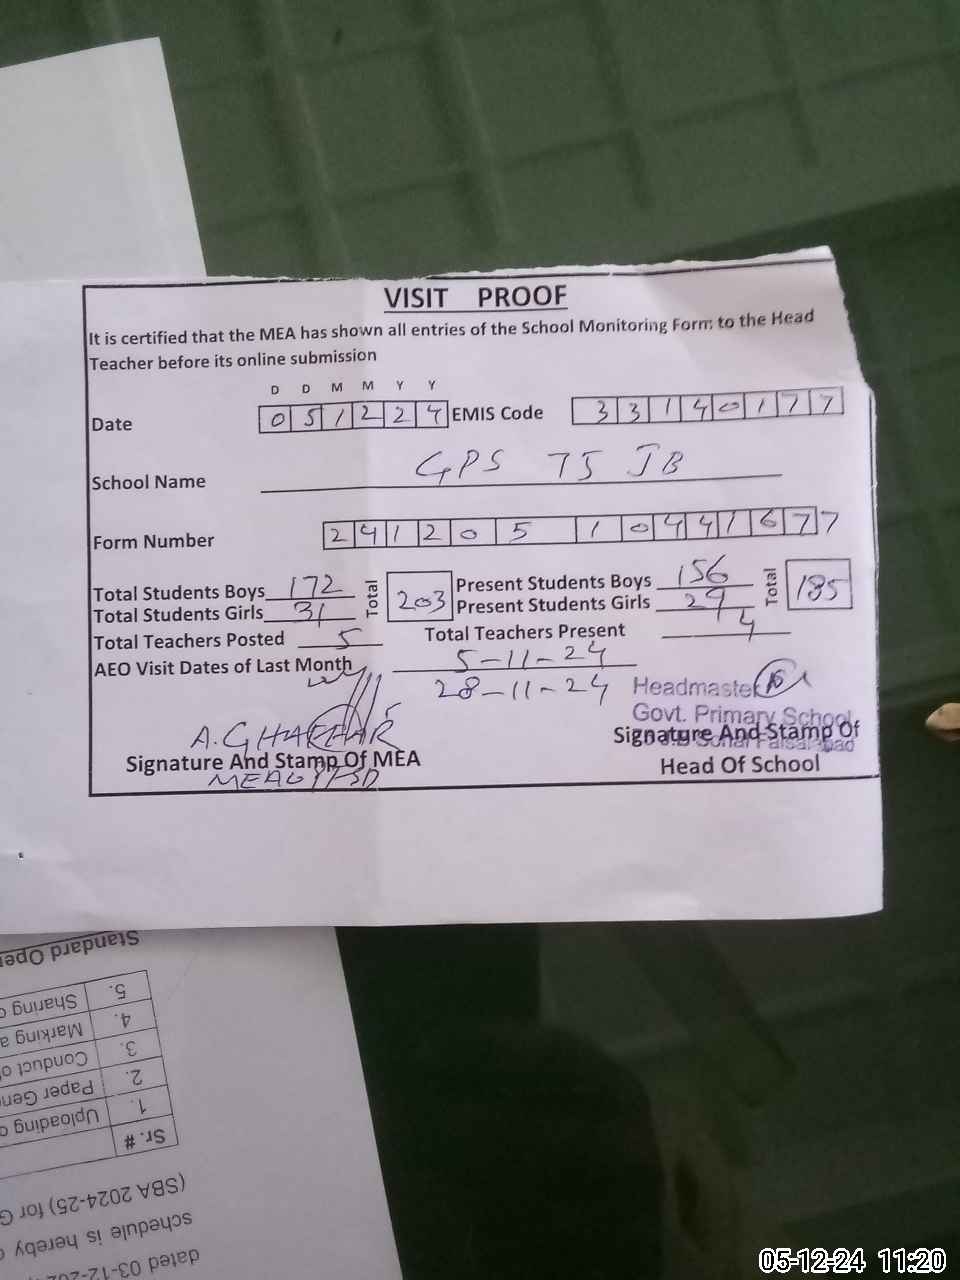 VISIT PROOF
It is certified that the MEA has shown all entries of the School Monitoring Form to the Head
Teacher before its online submission
D D M M Y Y
Date 0 5 1 2 2 4 EMIS Code 3 3 1 4 0 1 7 7
School Name GPS 75 JB
Form Number 2 4 1 2 0 5 1 0 4 4 1 6 7 7
Total Students Boys 172 Total 203 Present Students Boys 156 Total 185
Total Students Girls 31 Present Students Girls 29
Total Teachers Posted 5 Total Teachers Present 4
AEO Visit Dates of Last Month 5-11-24
28-11-24
Headmaster
Govt. Primary School
A. GHAFFAR
Signature And Stamp Of MEA
Signature And Stamp Of
Faisalabad
Head Of School
Standard Oper
5. Sharing
4. Marking a
3. Conduct of
2. Paper Gen
1. Uploading
Sr. #
(SBA 2024-25) for G
schedule is hereby
dated 03-12-20
05-12-24 11:20